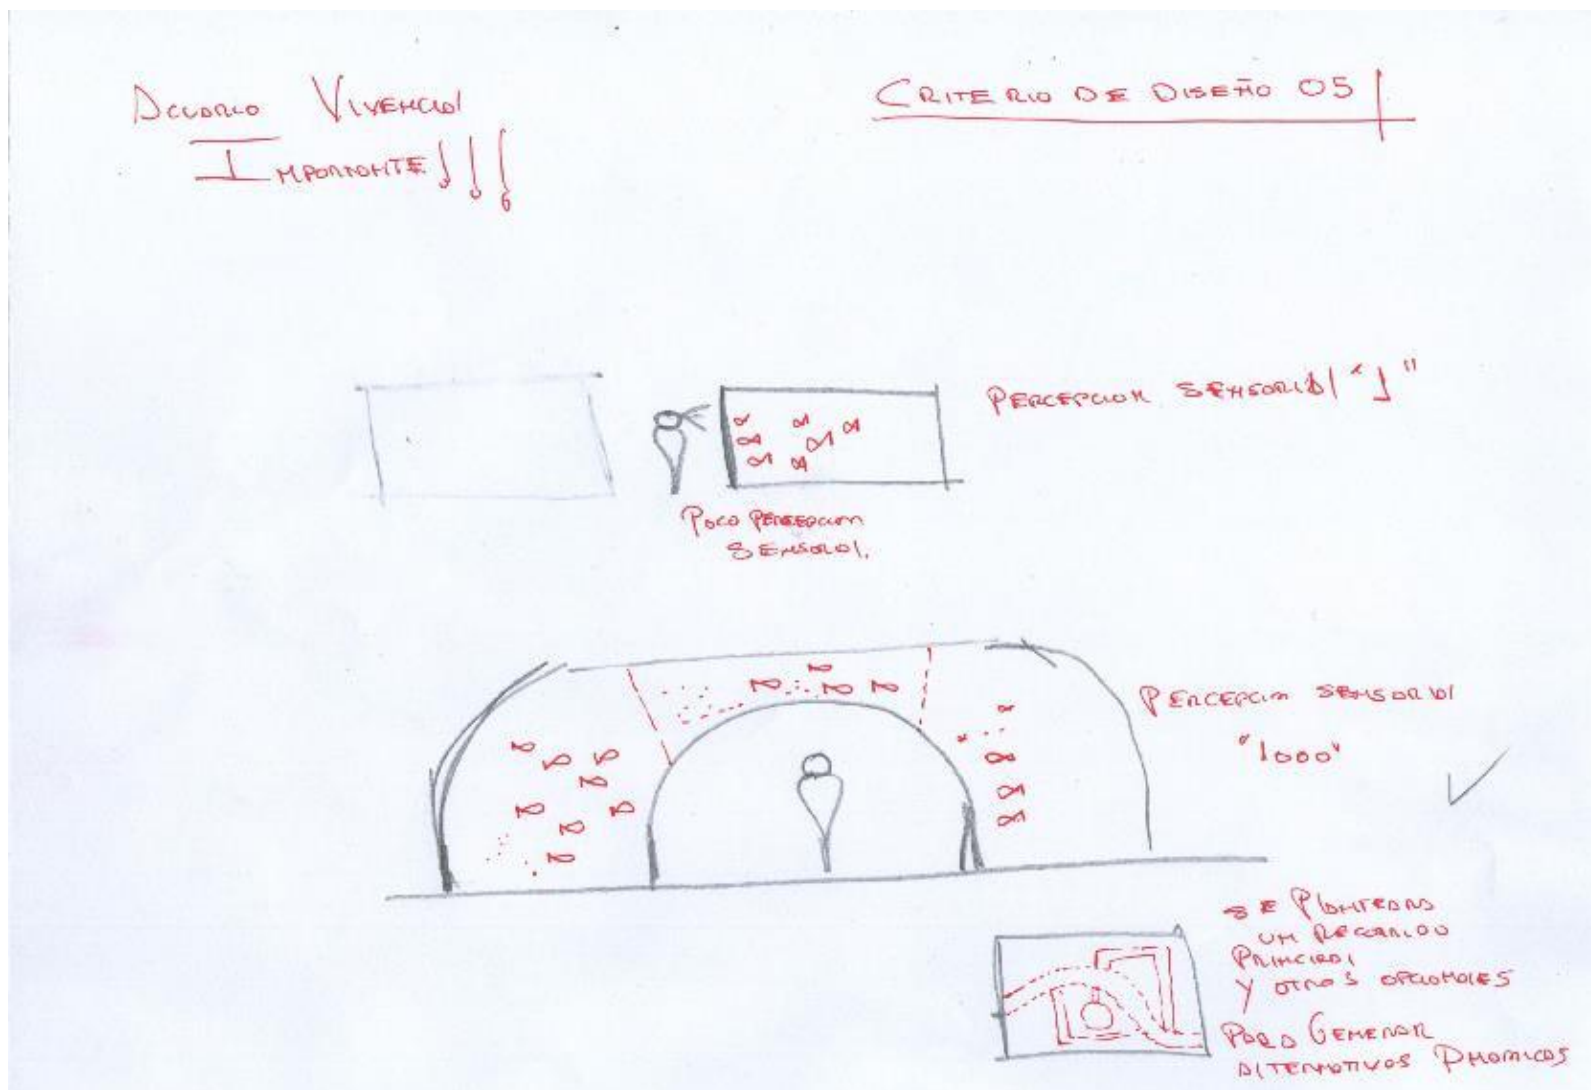 ACUARIO VIVENCIAL
IMPORTANTE!!!
CRITERIO DE DISEÑO 05
PERCEPCION SENSORIAL "1"
POCO PERCEPCION
SENSORIAL.
PERCEPCION SENSORIAL
"1000"
SE PLANTEARA
UN RECORRIDO
PRINCIPAL
Y OTROS OPCIONALES
PARA GENERAR
ALTERNATIVAS